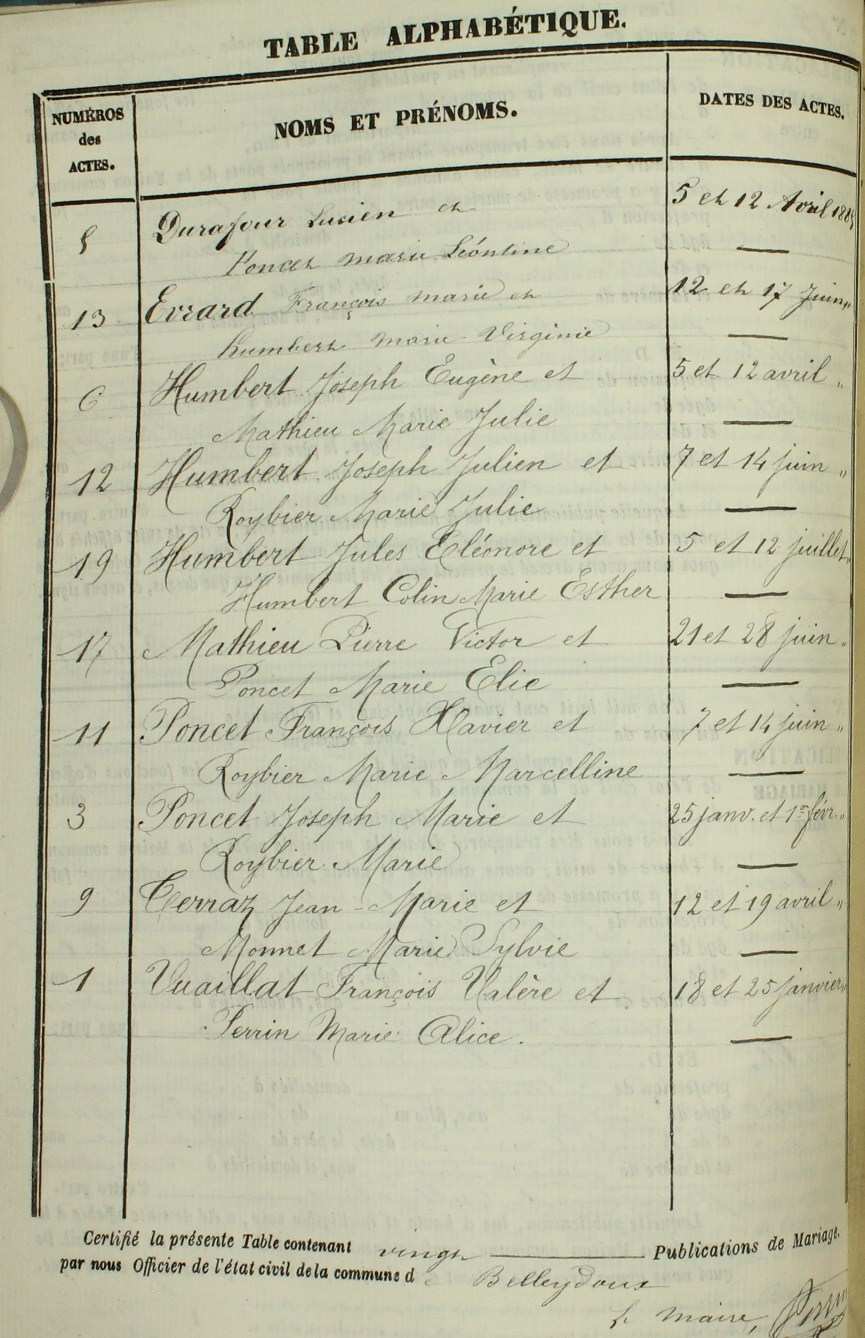 TABLE ALPHABÉTIQUE.
NUMÉROS des ACTES.
NOMS ET PRÉNOMS.
DATES DES ACTES.
5 Durafour Lucien et 5 et 12 Avril
Poncet Marie Léontine —
13 Evrard François Marie et 12 et 17 Juin "
Humbert Marie Virginie —
6 Humbert Joseph Eugène et 5 et 12 avril "
Mathieu Marie Julie —
12 Humbert Joseph Julien et 7 et 14 juin "
Roybier Marie Julie —
19 Humbert Jules Eléonore et 5 et 12 juillet "
Humbert Colin Marie Esther —
17 Mathieu Pierre Victor et 21 et 28 juin "
Poncet Marie Elie —
11 Poncet François Xavier et 7 et 14 juin "
Roybier Marie Marcelline —
3 Poncet Joseph Marie et 25 janv. et 1er févr. "
Roybier Marie —
9 Terraz Jean-Marie et 12 et 19 avril "
Monnet Marie Sylvie —
1 Vuaillat François Valère et 18 et 25 janvier "
Perrin Marie Alice. —
Certifié la présente Table contenant vingt Publications de Mariage.
par nous Officier de l'état civil de la commune d e Belleydoux
Le Maire,